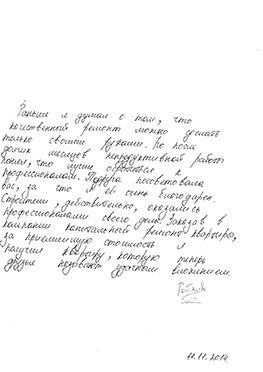 Раньше я думал о том, что
качественный ремонт можно сделать
только своими руками. Но после
долгих месяцев непродуктивной работы
понял, что лучше обратиться к
профессионалам. Подруга посоветовала
вас, за что я ей очень благодарен.
Строители, действительно, оказались
профессионалами своего дела. Заказав в
компании капитальный ремонт квартиры,
за приемлемую стоимость я
получил квартиру, которую теперь
друзья называют удачным вложением.
11.11.2014